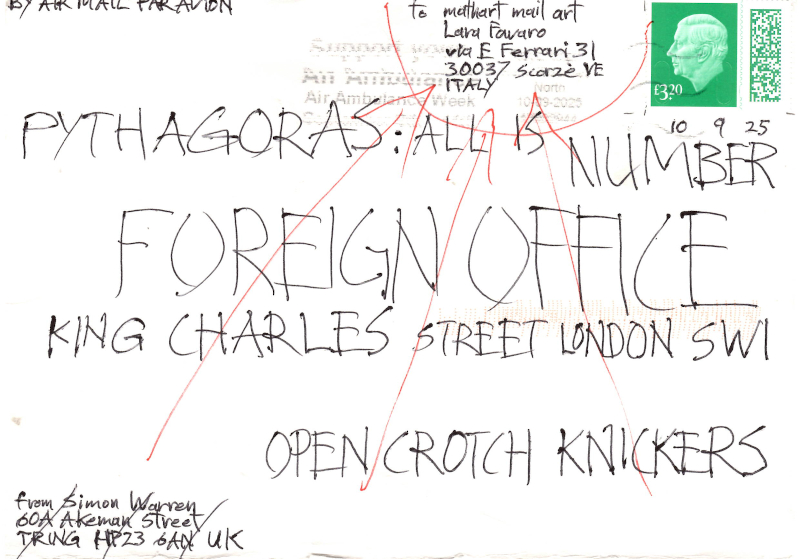 BY AIR MAIL PAR AVION
to mathart mail art
Lara Favaro
via E Ferrari 31
30037 Scorzè VE
ITALY
£3.20
Support your
Air Ambulance
Air Ambulance Week
North
10-09-2025
10 9 25
PYTHAGORAS: ALL IS NUMBER
FOREIGN OFFICE
KING CHARLES STREET LONDON SW1
OPEN CROTCH KNICKERS
from Simon Warren
60A Akeman Street
TRING HP23 6AN UK